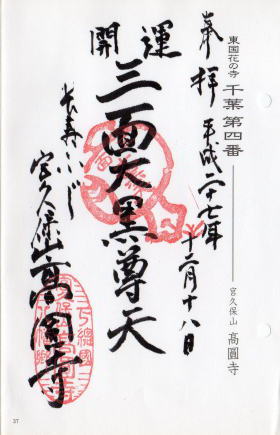 東国花の寺 千葉 第四番 宮久保山 高圓寺
奉拝 平成二十七年十二月十八日
開運
三面大黒尊天
長寿いぼじ
宮久保山 高圓寺
37